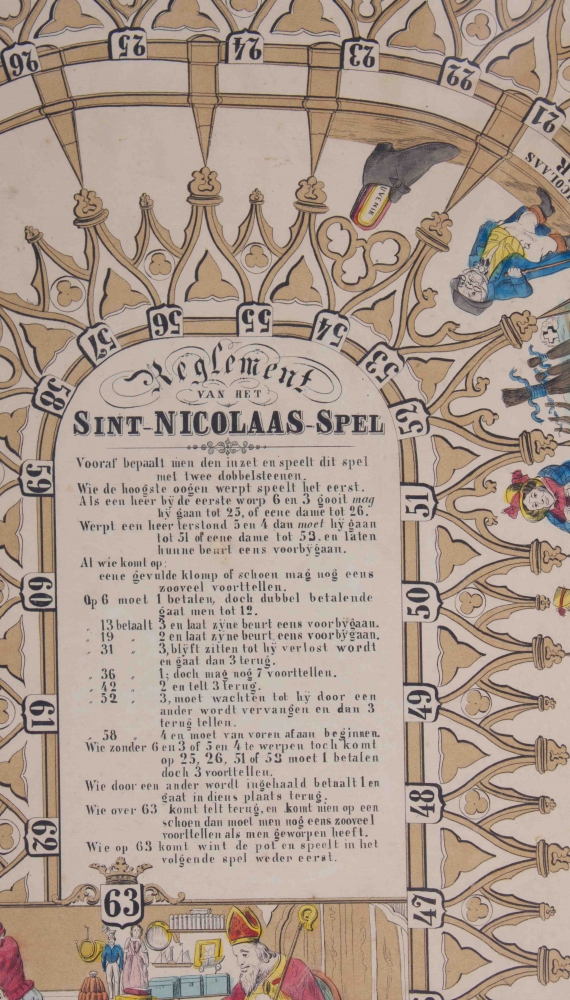 26
25
24
23
22
21
UVENIR
COLAAS
R
57
56
55
54
53
58
52
59
51
60
50
61
49
62
48
47
Reglement
VAN HET
SINT-NICOLAAS-SPEL
Vooraf bepaalt men den inzet en speelt dit spel
met twee dobbelsteenen.
Wie de hoogste oogen werpt speelt het eerst.
Als een heer by de eerste worp 6 en 3 gooit mag
hy gaan tot 25, of eene dame tot 26.
Werpt een heer terstond 5 en 4 dan moet hy gaan
tot 51 of eene dame tot 53, en laten
hunne beurt eens voorbygaan.
Al wie komt op:
eene gevulde klomp of schoen mag nog eens
zooveel voorttellen.
Op 6 moet 1 betalen, doch dubbel betalende
gaat men tot 12.
„ 13 betaalt 3 en laat zyne beurt eens voorbygaan.
„ 19 „ 2 en laat zyne beurt eens voorbygaan.
„ 31 „ 3, blyft zitten tot hy verlost wordt
en gaat dan 3 terug.
„ 36 „ 1; doch mag nog 7 voorttellen.
„ 42 „ 2 en telt 3 terug.
„ 52 „ 3, moet wachten tot hy door een
ander wordt vervangen en dan 3
terug tellen.
„ 58 „ 4 en moet van voren af aan beginnen.
Wie zonder 6 en 3 of 5 en 4 te werpen toch komt
op 25, 26, 51 of 53 moet 1 betalen
doch 3 voorttellen.
Wie door een ander wordt ingehaald betaalt 1 en
gaat in diens plaats terug.
Wie over 63 komt telt terug, en komt men op een
schoen dan moet men nog eens zooveel
voorttellen als men geworpen heeft.
Wie op 63 komt wint de pot en speelt in het
volgende spel weder eerst.
63